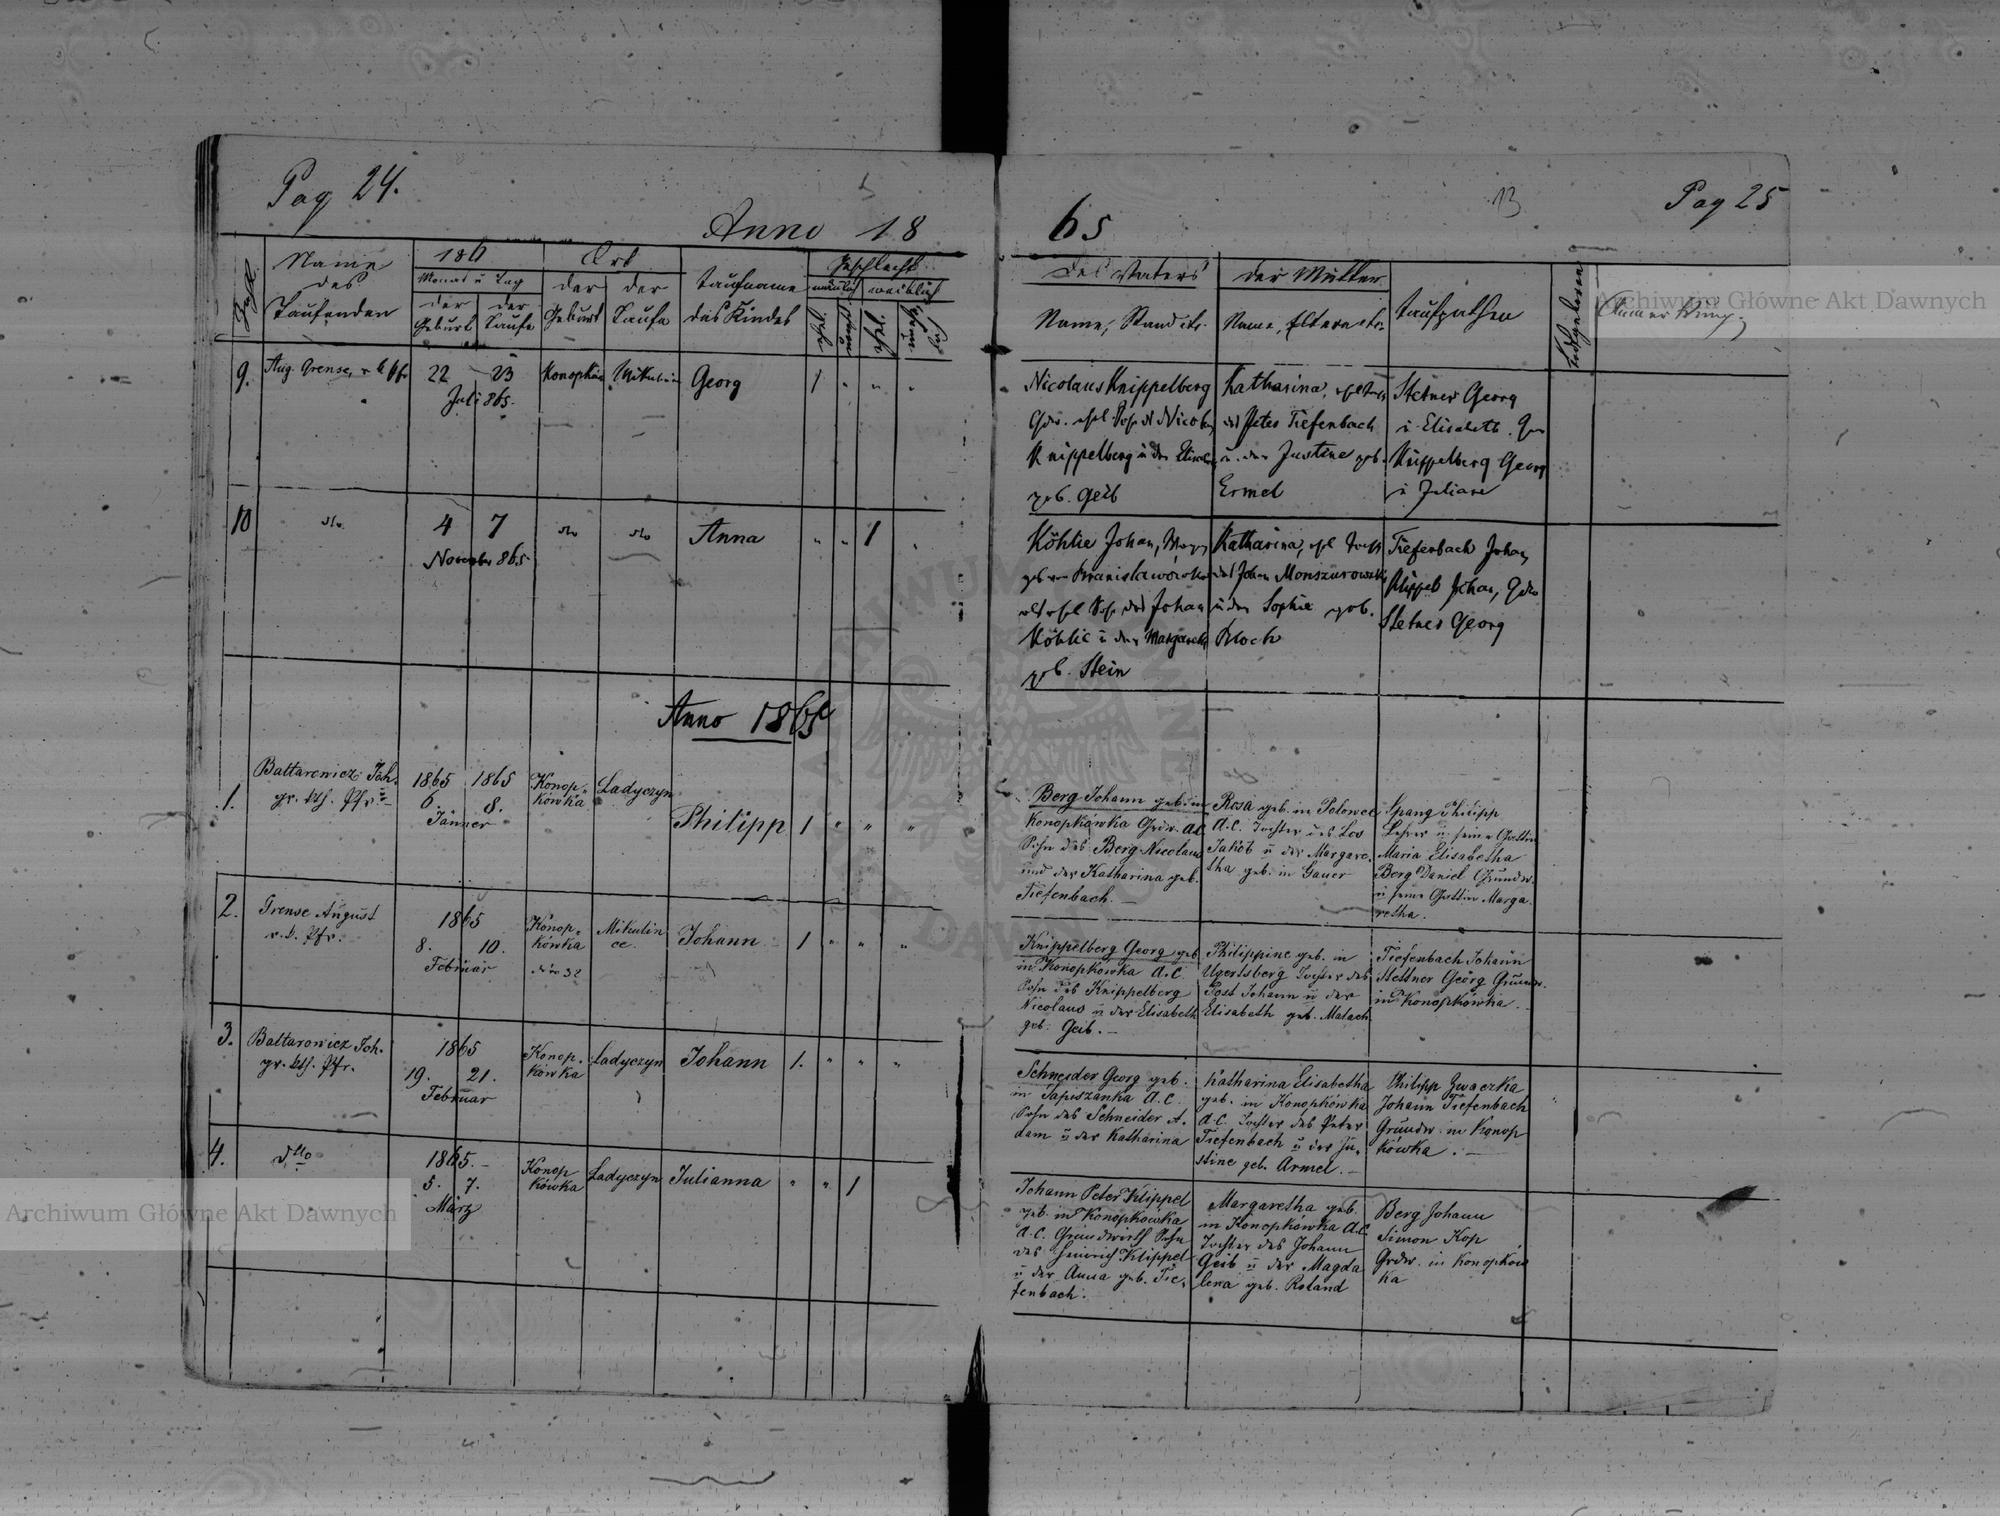 Pag 24.
Anno 18
65
13
Pag 25
Zahl
Name
des
Taufenden
186
Monat u Tag
der
Geburt
der
Taufe
Ort
der
Geburt
der
Taufe
Taufname
des Kindes
Geschlecht
männlich
weiblich
ehel.
unehl.
ehel.
Des Vaters
Name, Stand etc.
Der Mutter
Name, Eltern etc.
Taufpathen
Todtgeboren
Anmerkung.
9.
Aug. Grense,
22
23
Juli 865.
Konopków
Mikulin
Georg
1
Nicolaus Knippelberg
Knippelberg u der
geb. Geib
Katharina,
des Peter Tiefenbach
u. der Justine geb.
Ermel
Stetner Georg
u Elisabeth.
Knippelberg Georg
u Juliane
10
dto
4
7
November 865.
dto
dto
Anna
1
Köhlie Johan,
geb. von
Sohn des Johan
Köhlie u der Margareth
geb. Stein
Katharina,
des Johan
u der Sophie geb.
Bloch
Tiefenbach Johan
Klippel Johan,
Stetner Georg
Anno 1865
1.
Baltarowicz Joh.
gr. kth. Pfr.
1865
1865
6.
8.
Jänner
Konop-
kówka
Ladyczyn
Philipp
1
Berg Johann geb. in
Konopkówka Grdw. A.C.
Sohn des Berg Nicolaus
und der Katharina geb.
Tiefenbach.
Rosa geb. in Polowce
A.C. Tochter des Los
Jakob u der Margare-
tha geb. in Gauer
Spang Philipp
Lehrer u seine Gattin
Maria Elisabetha
Berg Daniel Grundw.
u seine Gattin Marga-
retha.
2.
Grense August
r. k. Pfr.
1865
8.
10.
Februar
Konop-
kówka
Nro 32
Mikulin
ce.
Johann
1
Knippelberg Georg geb.
in Konopkówka A.C.
Sohn des Knippelberg
Nicolaus u der Elisabeth
geb. Geib.
Philippine geb. in
Ugartsberg Tochter des
Post Johann u der
Elisabeth geb. Malach
Tiefenbach Johann
Stettner Georg Grundw.
in Konopkówka.
3.
Baltarowicz Joh.
gr. kth. Pfr.
1865
19.
21.
Februar
Konop-
kówka
Ladyczyn
Johann
1.
Schneider Georg geb.
in Sapiszanka A.C.
Sohn des Schneider A-
dam u der Katharina
Katharina Elisabetha
geb. in Konopkówka
A.C. Tochter des Peter
Tiefenbach u der Ju-
stine geb. Armel.
Philipp Zwaczka
Johann Tiefenbach
Grundw. in Konop
kówka.
4.
dtto
1865.
5.
7.
März
Konop
kówka
Ladyczyn
Julianna
1
Johann Peter Klippel
geb. in Konopkówka
A.C. Grundwirth Sohn
des Heinrich Klippel
u der Anna geb. Tie-
fenbach.
Margaretha geb.
in Konopkówka A.C.
Tochter des Johann
Geib u der Magda
lena geb. Roland
Berg Johann
Simon Kop
Grdw. in Konopków
ka
Archiwum Główne Akt Dawnych
Archiwum Główne Akt Dawnych